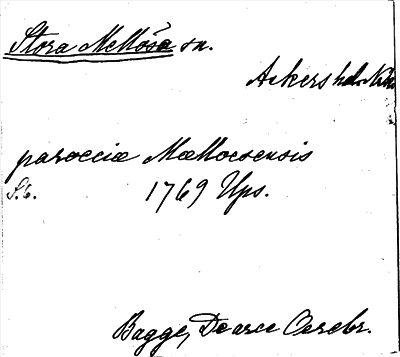 Stora Mellösa sn.
Askers hd. Nke
paroecia Mællocsensis
S.6. 1769 Ups.
Bagge, De arce Oerebr.